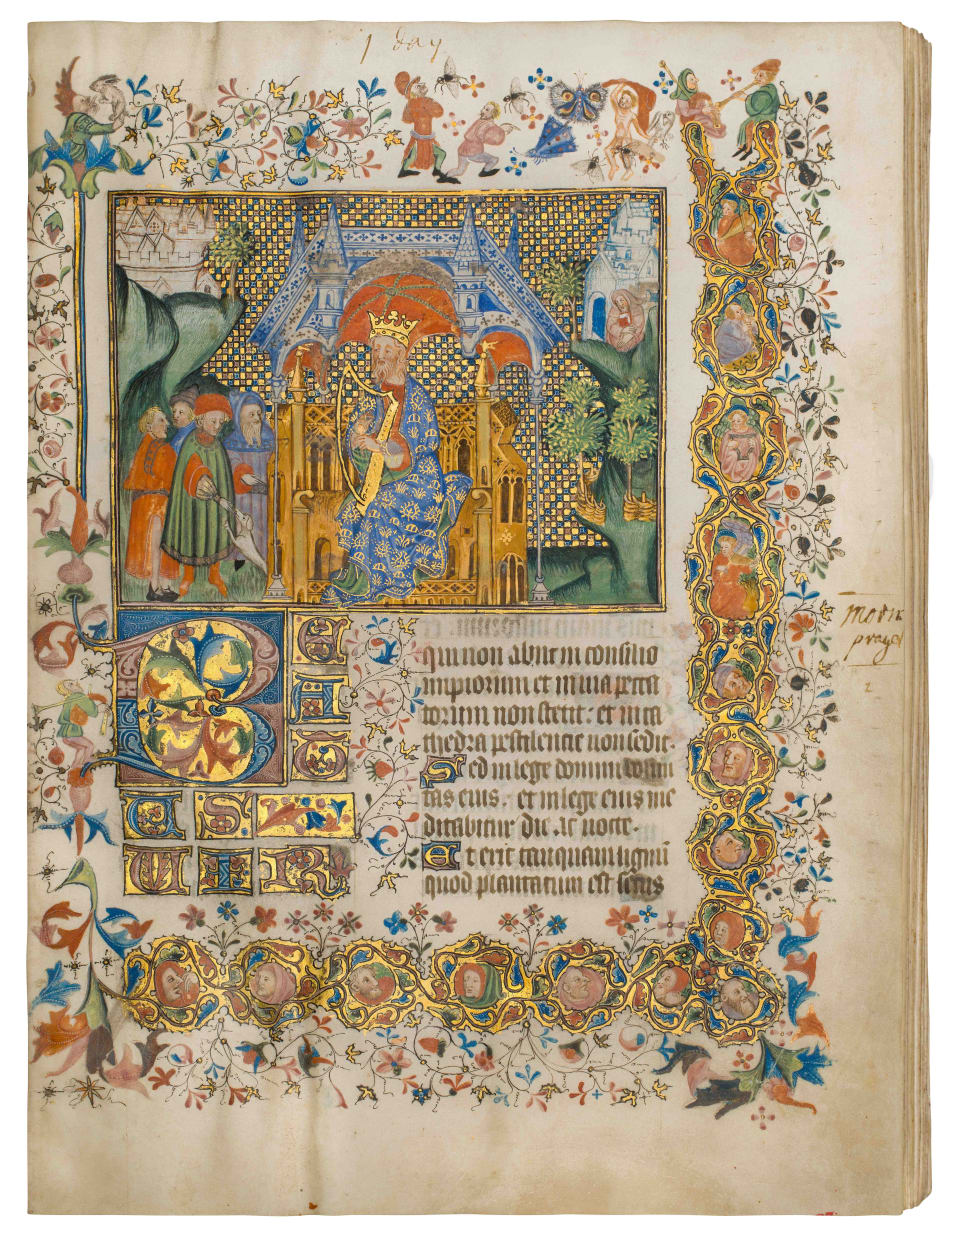 1 day
B E
A
T
U S
U I R
qui non abiit in consilio
impiorum et in uia pecca
torum non stetit: et in ca
thedra pestilentie non sedit.
Sed in lege domini volun
tas eius: et in lege eius me
ditabitur die ac nocte.
Et erit tanquam lignū
quod plantatum est secus
Morn
prayer